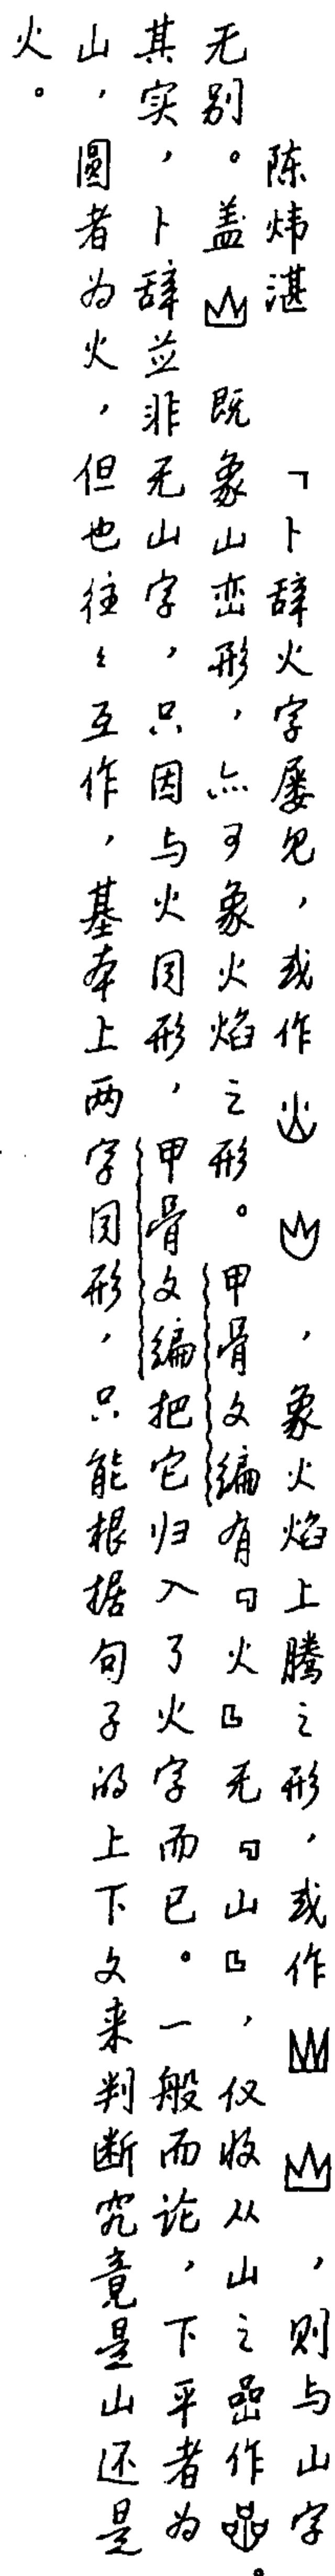 陈炜湛 「卜辞火字屡见，或作 ，象火焰上腾之形，或作 ，则与山字
无别。盖 既象山峦形，亦可象火焰之形。甲骨文编有『火』无『山』，仅收从山之嵒作 。
其实，卜辞並非无山字，只因与火同形，甲骨文编把它归入了火字而已。一般而论，下平者为
山，圆者为火，但也往々互作，基本上两字同形，只能根据句子的上下文来判断究竟是山还是
火。